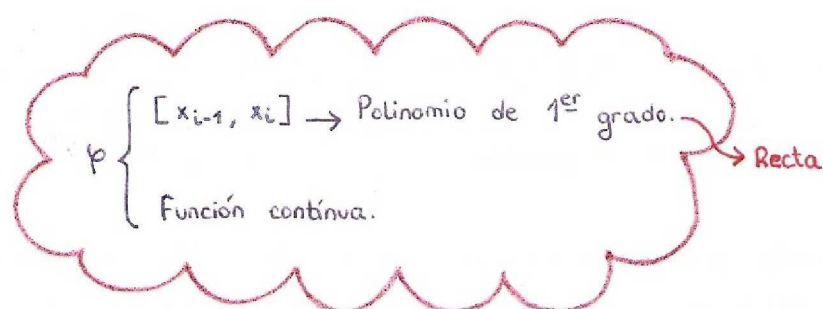 φ { [x_{i-1}, x_i] → Polinomio de 1^{er} grado. → Recta
Función contínua.